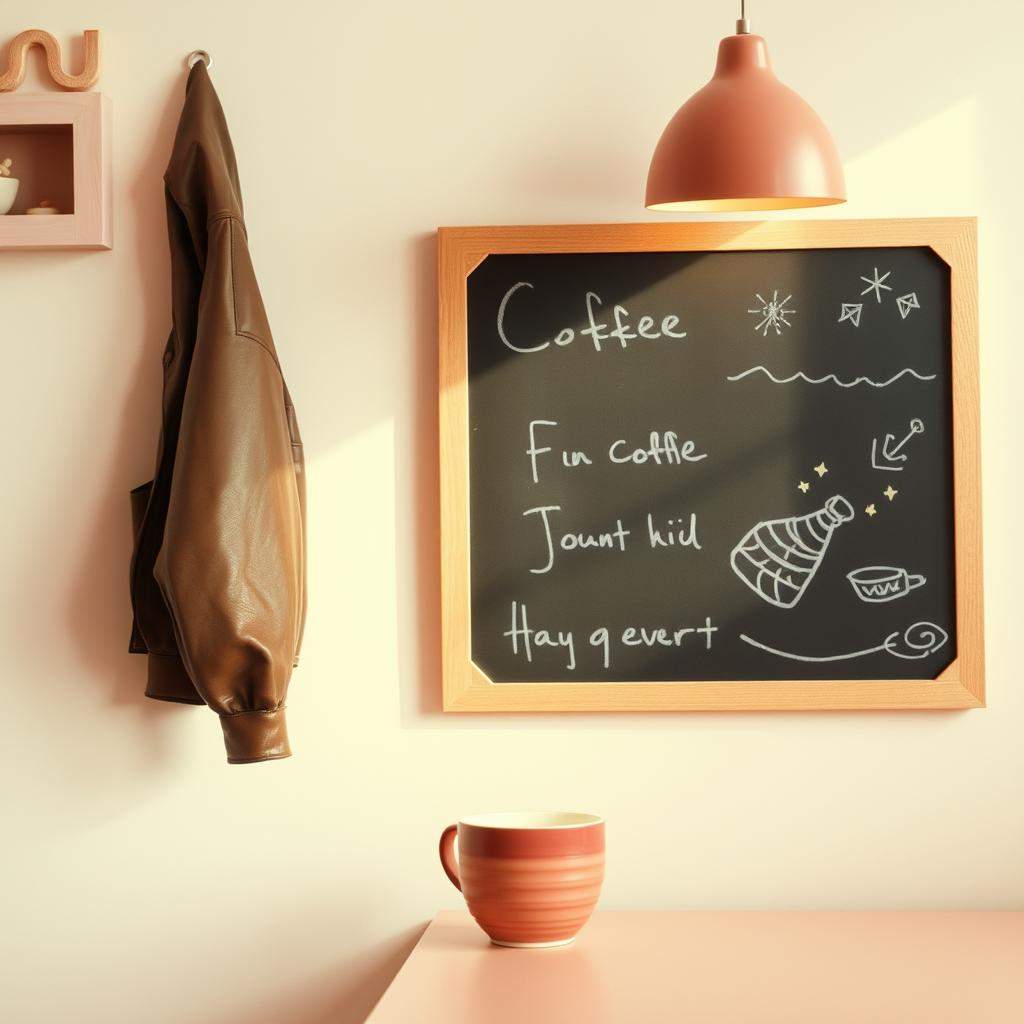 Coffee
Fın coffle
Jount hiıl
Hay q evert